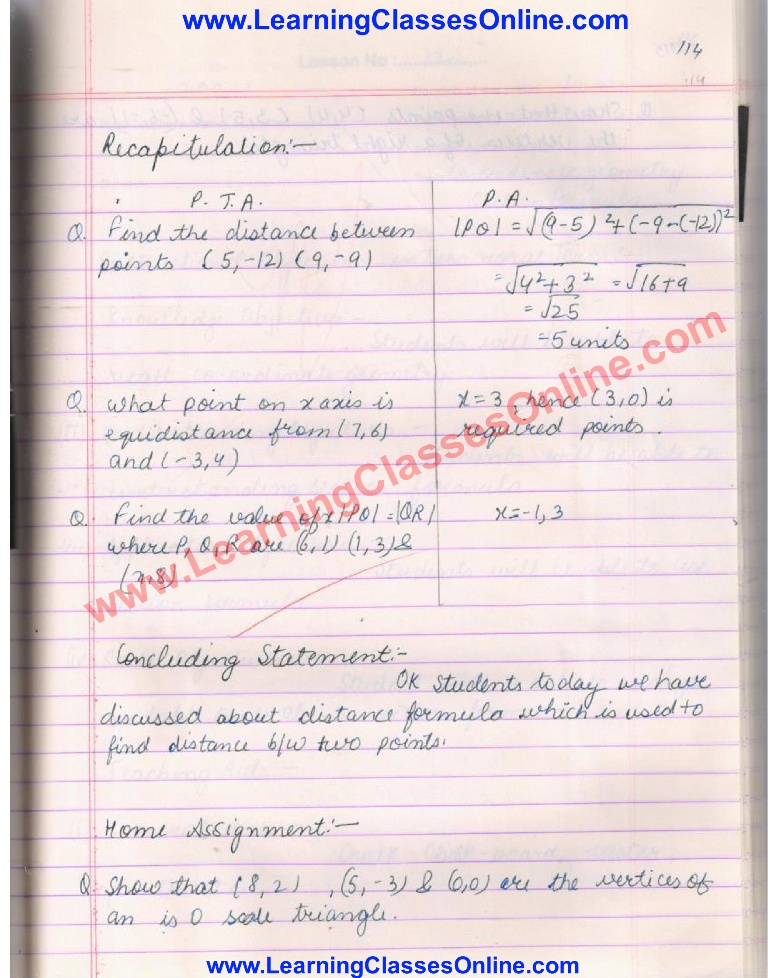 www.LearningClassesOnline.com
114
Recapitulation:-
P.T.A.
P.A.
Q. Find the distance between
points (5,-12) (9,-9)
|PQ| = √(9-5)²+(-9-(-12))²
= √4²+3² = √16+9
= √25
= 5 units
Q. What point on x axis is
equidistance from (7,6)
and (-3,4)
x=3, hence (3,0) is
required points.
Q. Find the value of x |PQ| = |QR|
where P, Q, R are (6,1) (1,3) &
(x,8)
x=-1,3
www.LearningClassesOnline.com
Concluding Statement:-
OK students today we have
discussed about distance formula which is used to
find distance b/w two points.
Home Assignment:-
Q. Show that (8,2), (5,-3) & (0,0) are the vertices of
an is O scale triangle.
www.LearningClassesOnline.com